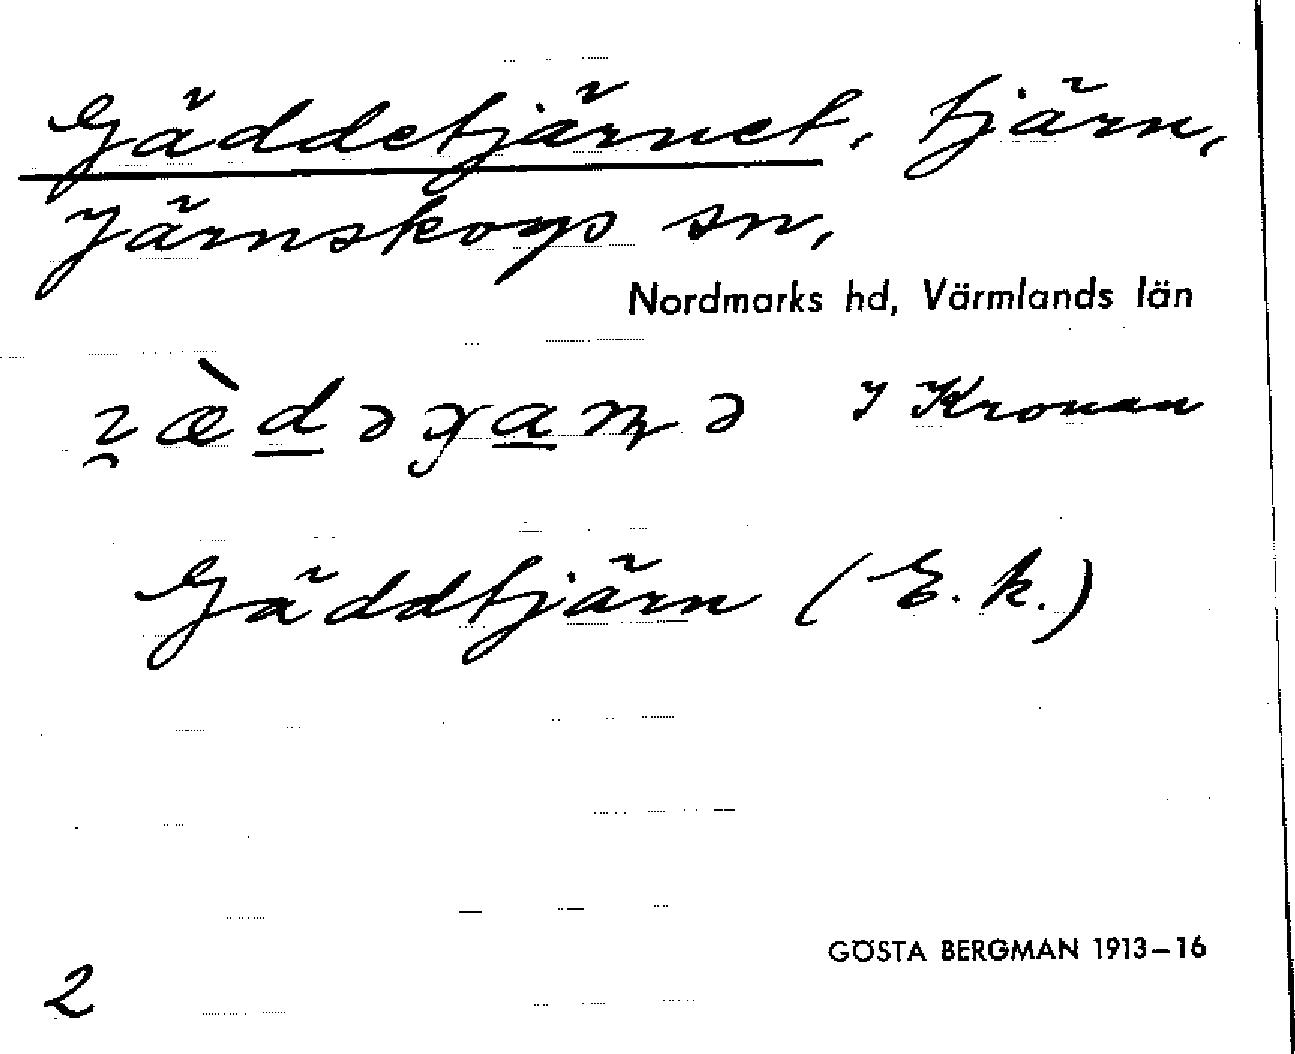 Gäddetjärnet, tjärn,
Järnskogs sn,
Nordmarks hd, Värmlands län
J Kronan
Gäddtjärn (E. k.)
GÖSTA BERGMAN 1913–16
2